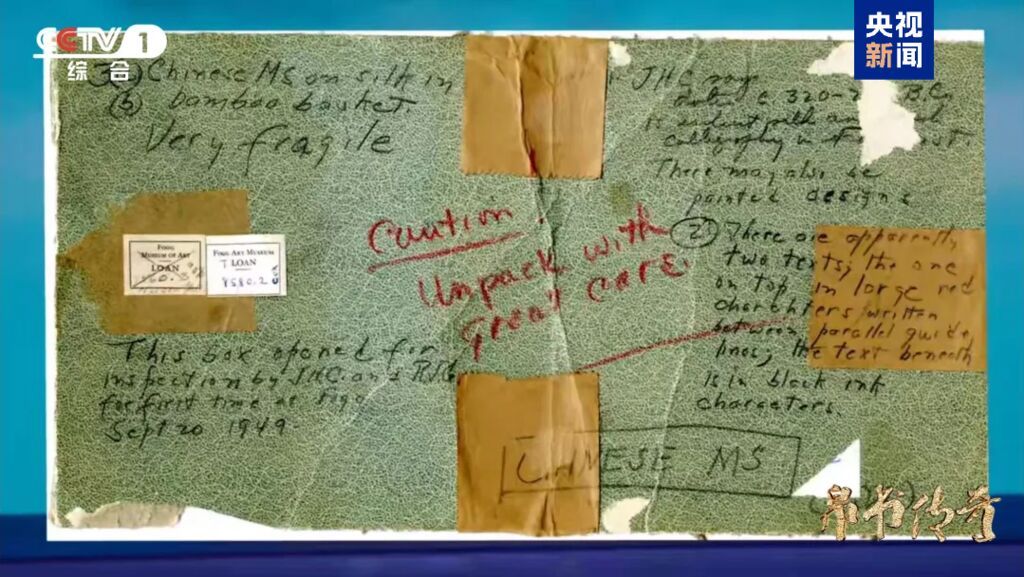 CCTV 1
综合
央视
新闻
Chinese MS on silk in
(b) bamboo basket.
Very fragile
JHC
date c 320-
B.C.
calligraphy
There may also be
painted designs
Caution.
Unpack with
great care.
(2) There are apparently
two texts; the one
on top in large red
charahters written
between parallel guide
lines; the text beneath
is in black ink
characters.
FOGG
MUSEUM OF ART
LOAN
FOGG ART MUSEUM
T LOAN
8580.2
This box opened for
inspection by JHC and
for first time at Fogg
Sept 20 1949.
CHINESE MS
帛书传奇